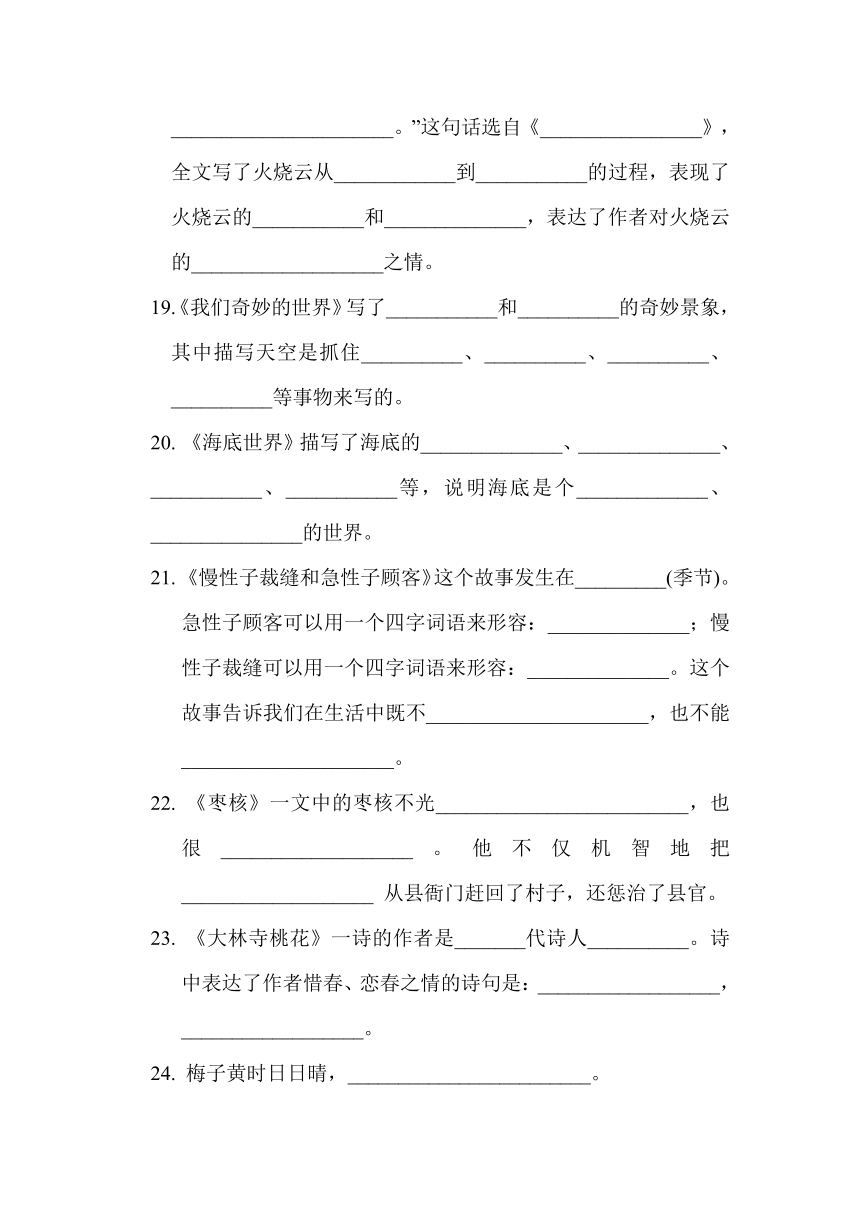 ______________________。”这句话选自《________________》，
全文写了火烧云从____________到___________的过程，表现了
火烧云的___________和______________，表达了作者对火烧云
的___________________之情。
19.《我们奇妙的世界》写了___________和__________的奇妙景象，
其中描写天空是抓住__________、__________、__________、
__________等事物来写的。
20. 《海底世界》描写了海底的______________、______________、
___________、___________等，说明海底是个_____________、
_______________的世界。
21. 《慢性子裁缝和急性子顾客》这个故事发生在_________(季节)。
急性子顾客可以用一个四字词语来形容：______________；慢
性子裁缝可以用一个四字词语来形容：______________。这个
故事告诉我们在生活中既不______________________，也不能
_____________________。
22. 《枣核》一文中的枣核不光_________________________，也
很___________________。他不仅机智地把
___________________ 从县衙门赶回了村子，还惩治了县官。
23. 《大林寺桃花》一诗的作者是_______代诗人__________。诗
中表达了作者惜春、恋春之情的诗句是：__________________，
__________________。
24. 梅子黄时日日晴，________________________。